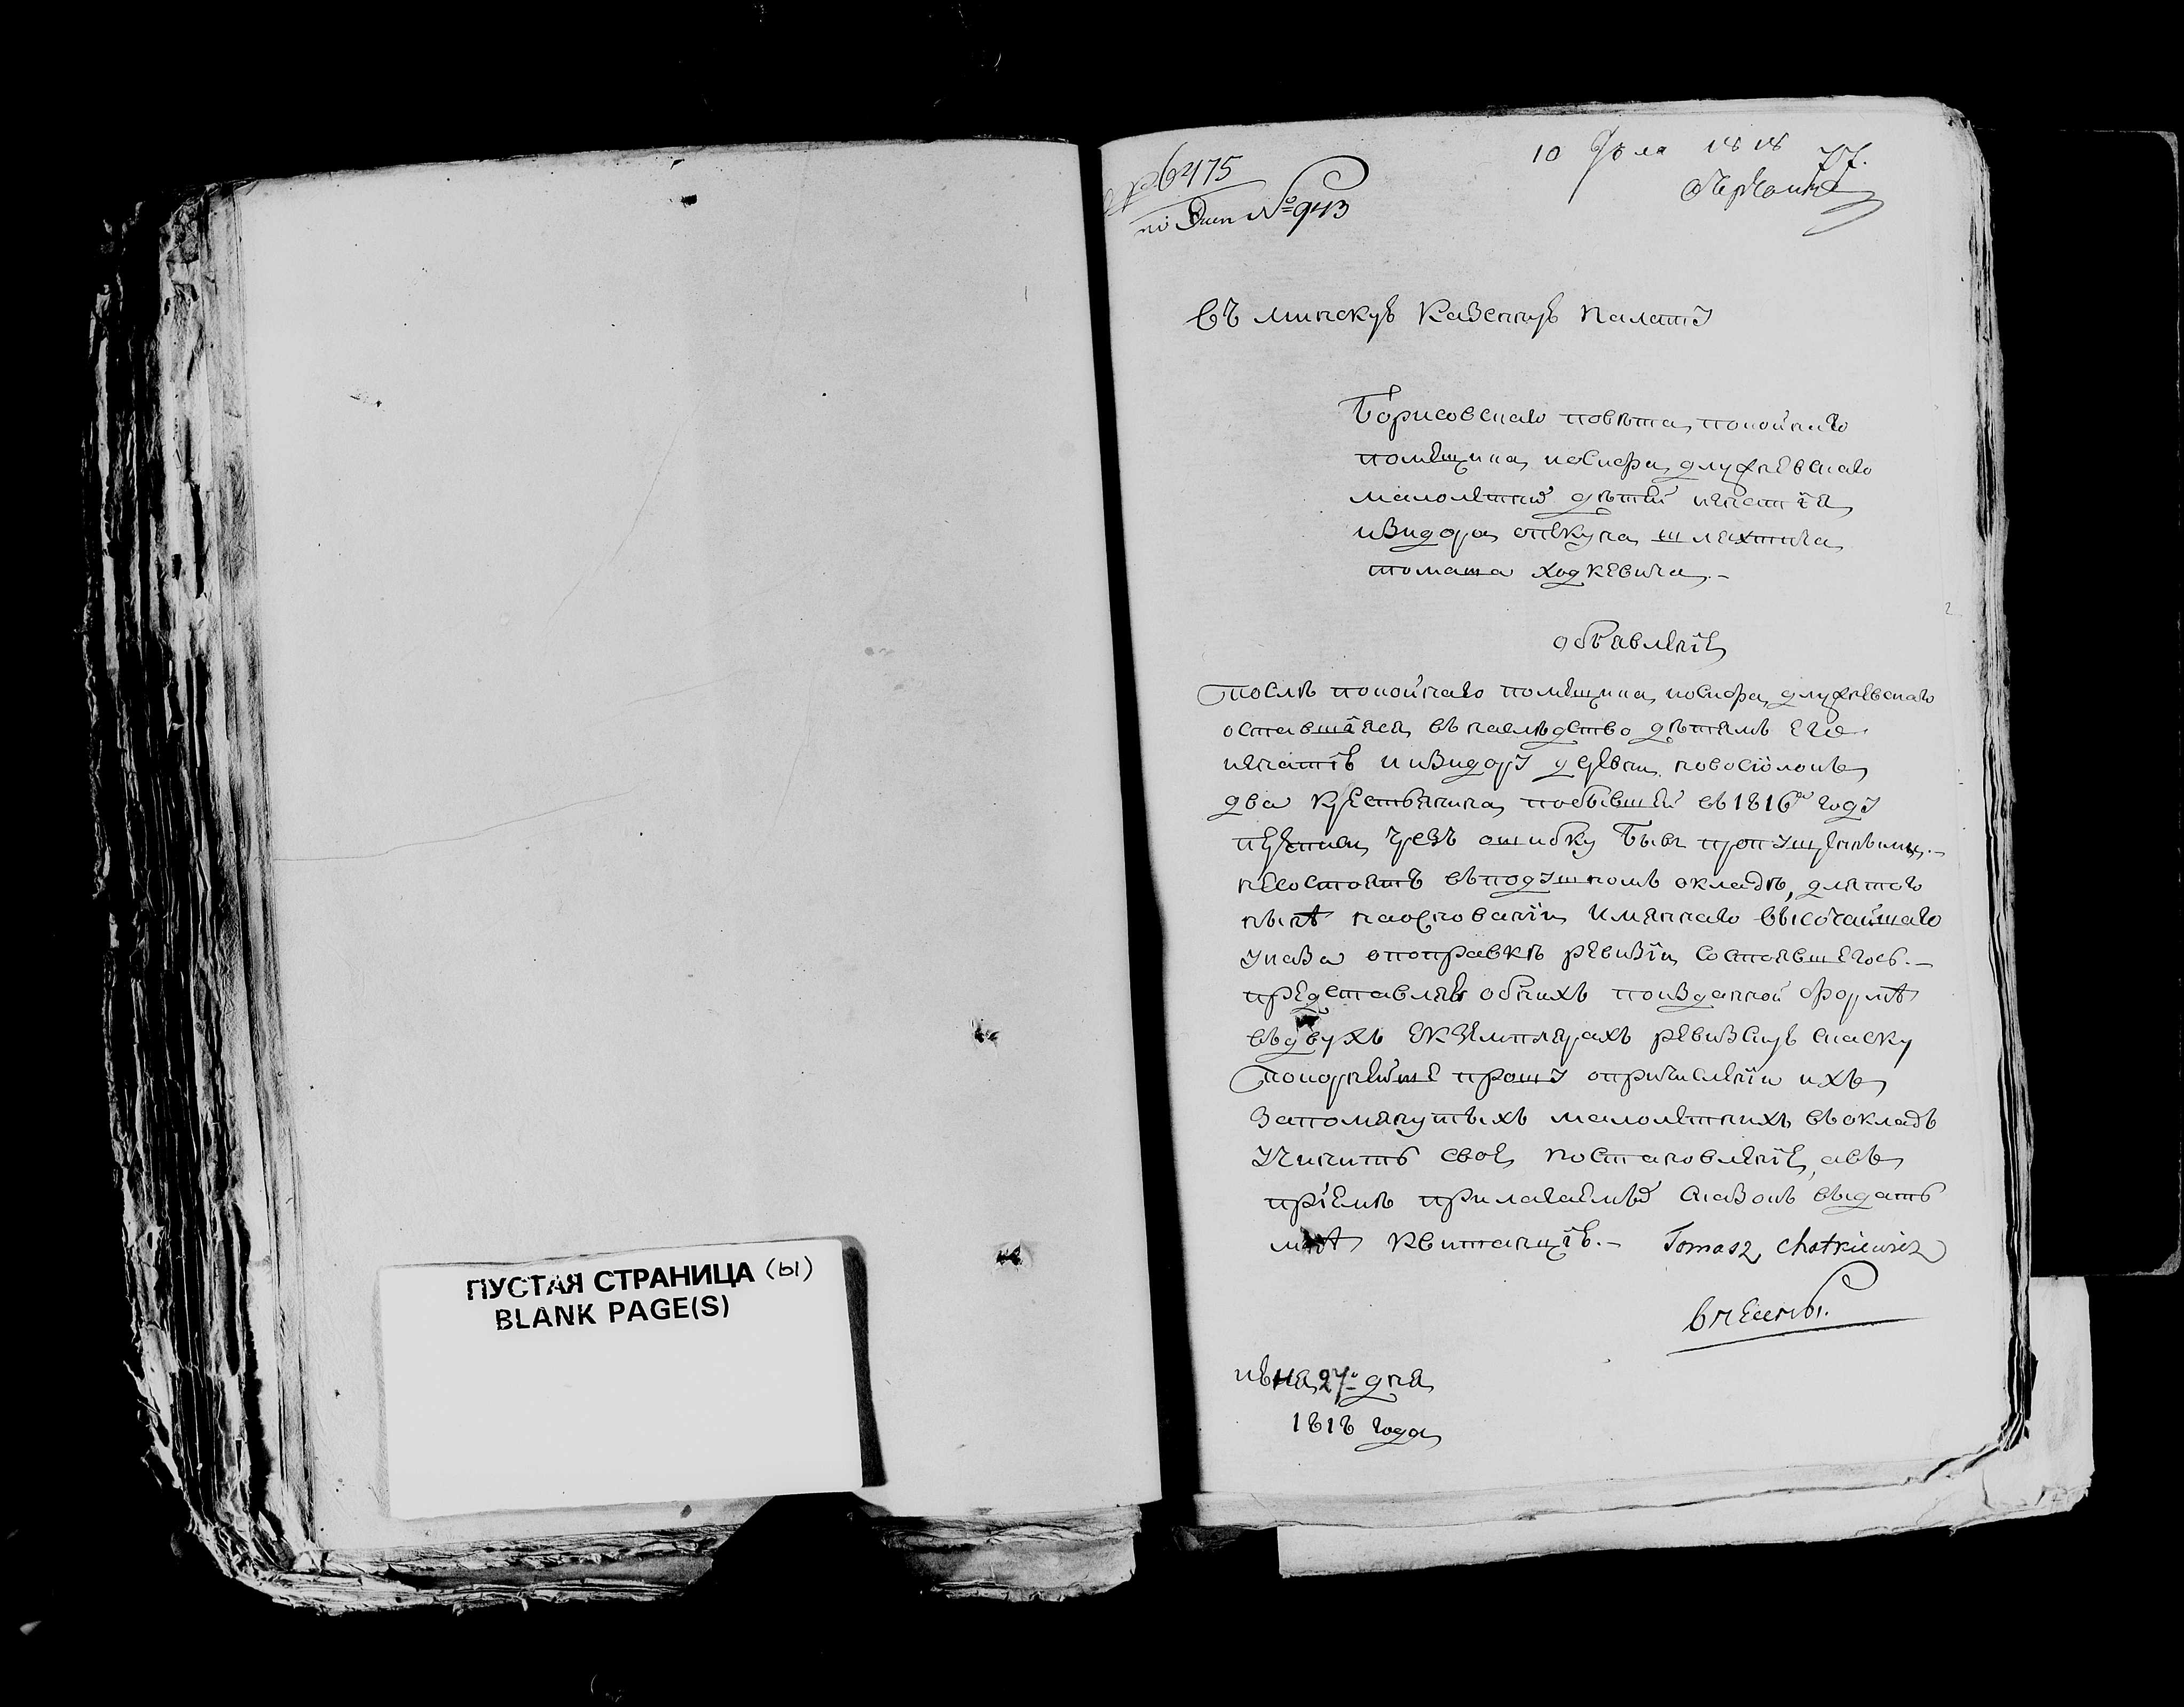 ПУСТАЯ СТРАНИЦА (ы)
BLANK PAGE(S)
6475
№ 943
10 Июля 1818
77.
въ минскую Казенную Палату
Борисовскаго повѣта покойнаго
помѣщика иосифа длужневскаго
малолѣтныхъ дѣтей игнатія
изидора опѣкуна шляхтича
томаша ходкевича.-
объявленіе
послѣ покойнаго помѣщика иосифа длужневскаго
оставшіяся въ наслѣдство дѣтямъ его
игнатію и изидору у деревни
два крестьянина побывшей въ 1816м году
чрезъ ошибку бывъ пропущенными.-
несостоятъ въподушномъ окладѣ, длятого
нынѣ наосновании имяннаго высочайшаго
указа опоправкѣ ревизіи состоявшегось.-
представляя обнихъ поизданной формѣ
въдвухъ екземплярахъ ревизскую скаску
покорнѣйше прошу опричисленіи ихъ
запомянутыхъ малолѣтнихъ въокладъ
учинитъ свое постановленіе, авъ
пріемѣ прилагаемыхъ сказокъ выдать
мнѣ квитанцію.- Tomasz Chotkiewicz
июня 27го дня
1818 года